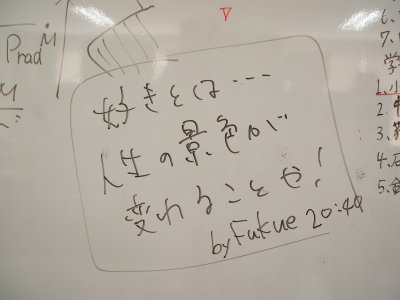 Prad
好きとは・・・
人生の景色が
変わることや!
by Fukue 20:49
6.
7.
学
1.
2.
3.
4.
5.